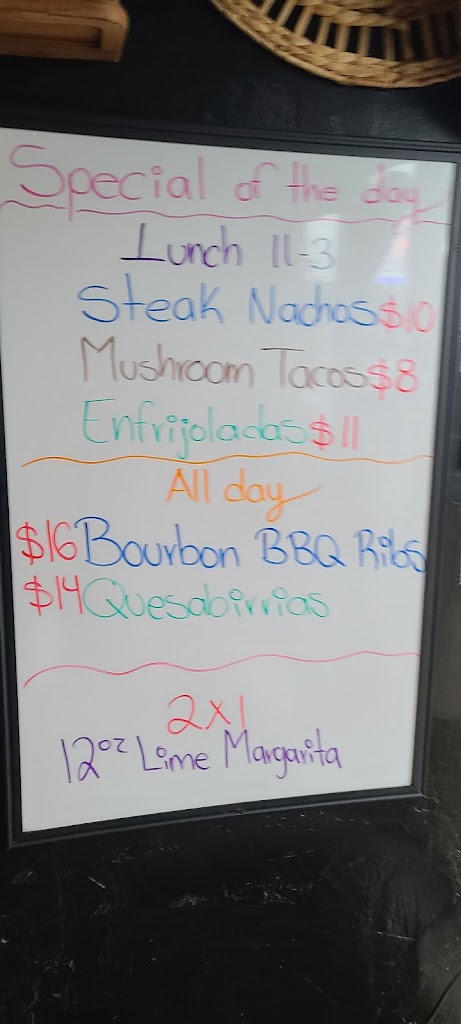 Special of the day
Lunch 11-3
Steak Nachos $10
Mushroom Tacos $8
Enfrijoladas $11
All day
$16 Bourbon BBQ Ribs
$14 Quesabirrias
2x1
12oz Lime Margarita